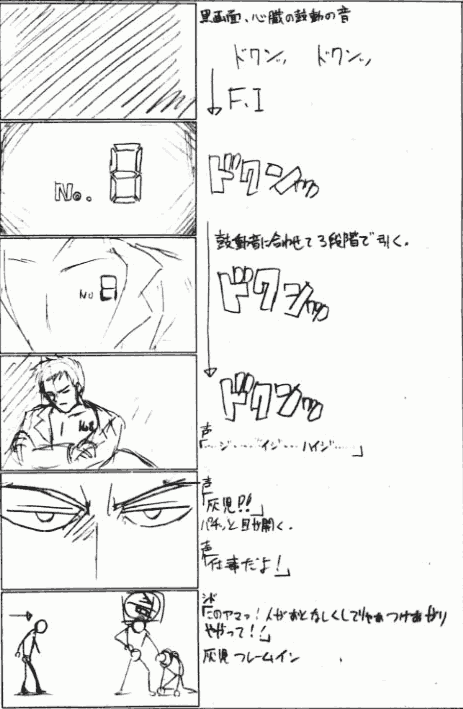 黒画面、心臓の鼓動の音
ドクンッ ドクンッ
F.I
No. 8
ドクンッ
鼓動音に合わせて3段階で引く。
No 8
ドクンッ
ドクンッ
No8
声
「……ジ……イジ……ハイジ……」
声
「灰児!!」
パチッと目が開く。
声
「仕事だよ!」
「このアマっ!人がおとなしくしてりゃあつけあがり
やがって!」
灰児フレームイン